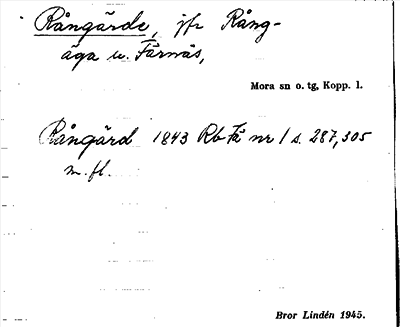 Rångärde, jfr Rång-
äga u. Färnäs,
Mora sn o. tg, Kopp. l.
Rångärd 1843 Rb Fä nr 1 s. 287, 305
m. fl.
Bror Lindén 1945.